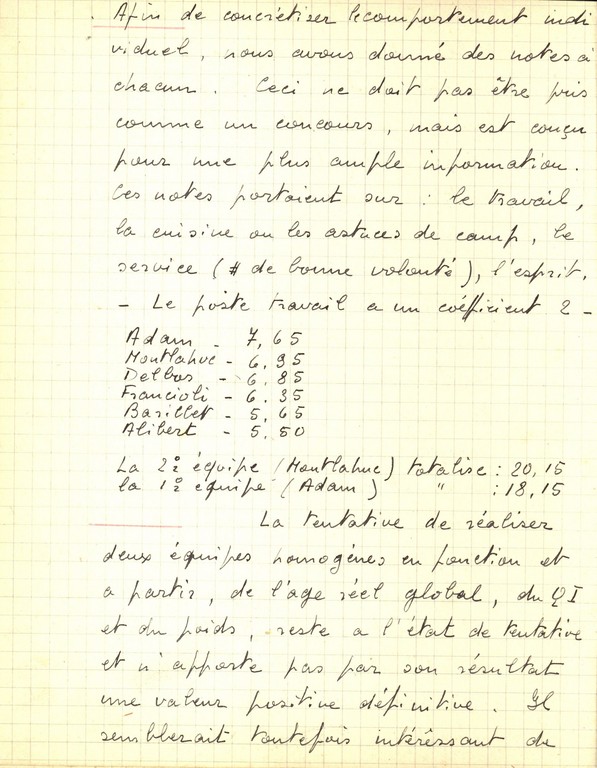 . Afin de concrétiser le comportement indi
viduel, nous avons donné des notes à
chacun. Ceci ne doit pas être pris
comme un concours, mais est conçu
pour une plus ample information.
Ces notes portaient sur : le travail,
la cuisine ou les astuces de camp, le
service (# de bonne volonté), l'esprit.
- Le poste travail a un coéfficient 2 -
Adam - 7,65
Montlahuc - 6.95
Delbos - 6.85
Francioli - 6.35
Barillet - 5,65
Alibert - 5.50
La 2° équipe (Montlahuc) totalise : 20,15
la 1° équipe (Adam) " : 18,15
La tentative de réaliser
deux équipes homogènes en fonction et
a partir, de l'age réel global, du QI
et du poids, reste a l'état de tentative
et n'apporte pas par son résultat
une valeur positive définitive. Il
semblerait toutefois intérêssant de